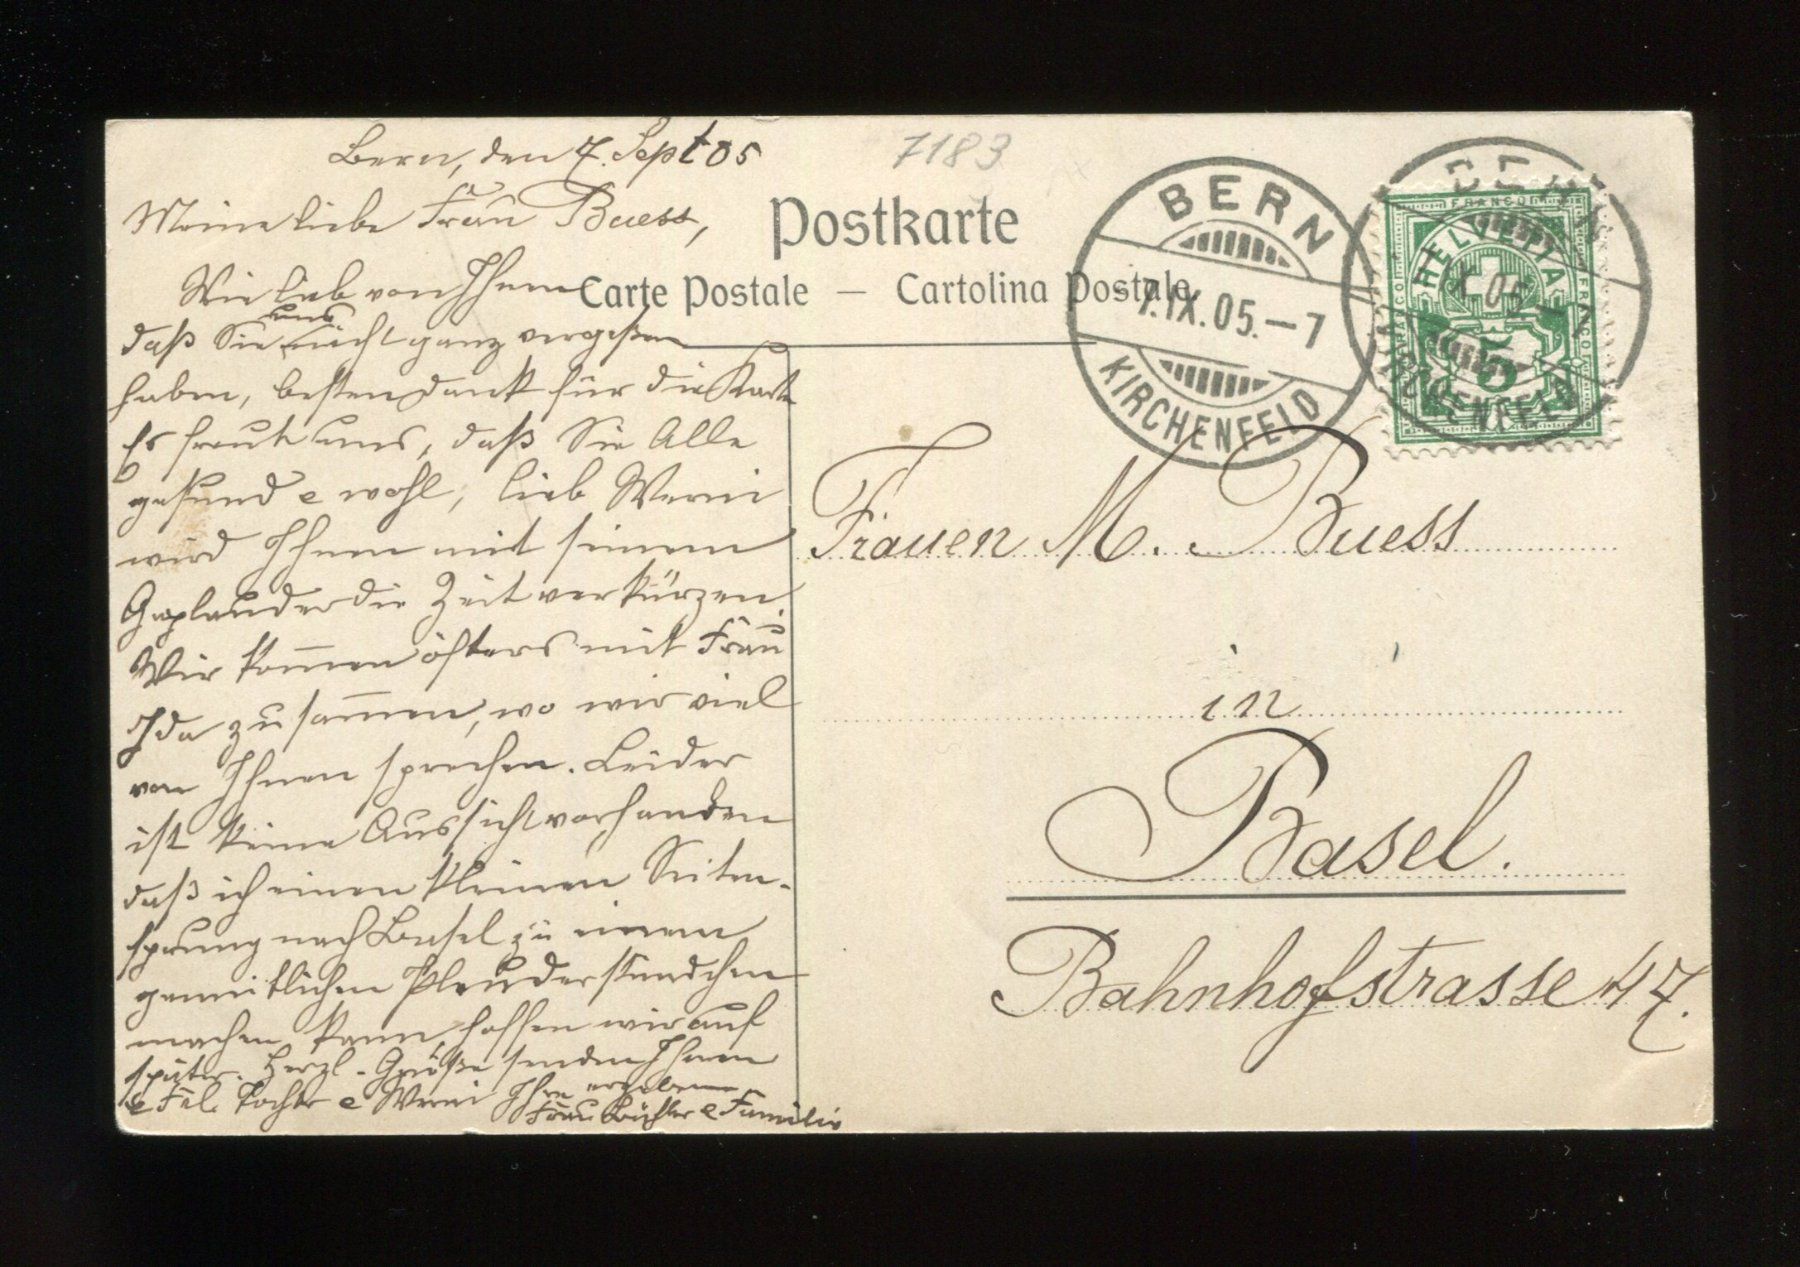 Bern, den 7. Sept 05
7183
Meine liebe Frau Buess,
Postkarte
Carte Postale — Cartolina Postale
BERN
7.IX.05.–7
KIRCHENFELD
BERN
IX.05.–7
KIRCHENFELD
FRANCO
HELVETIA
FRANCO
FRANCO
5
Wie lieb von Ihnen
daß Sie uns nicht ganz vergeßen
haben, besten Dank für die Karte
Es freut uns, daß Sie Alle
gesund & wohl, lieb Werni
wird Ihnen mit seinem
Geplauder die Zeit verkürzen.
Wir kom̄en öfters mit Frau
Ida zusam̄en, wo wir viel
von Ihnen sprechen. Leider
ist keine Aussicht vorhanden
daß ich einen kleinen Seiten-
sprung nach Basel zu einem
gemütlichen Plauderstündchen
machen kann, hoffen wir auf
später. Herzl. Grüße senden Ihnen
& Frl. Tochter & Werni Ihre ergebene
Frau & Familie
Frauen M. Buess
in
Basel.
Bahnhofstrasse 47.